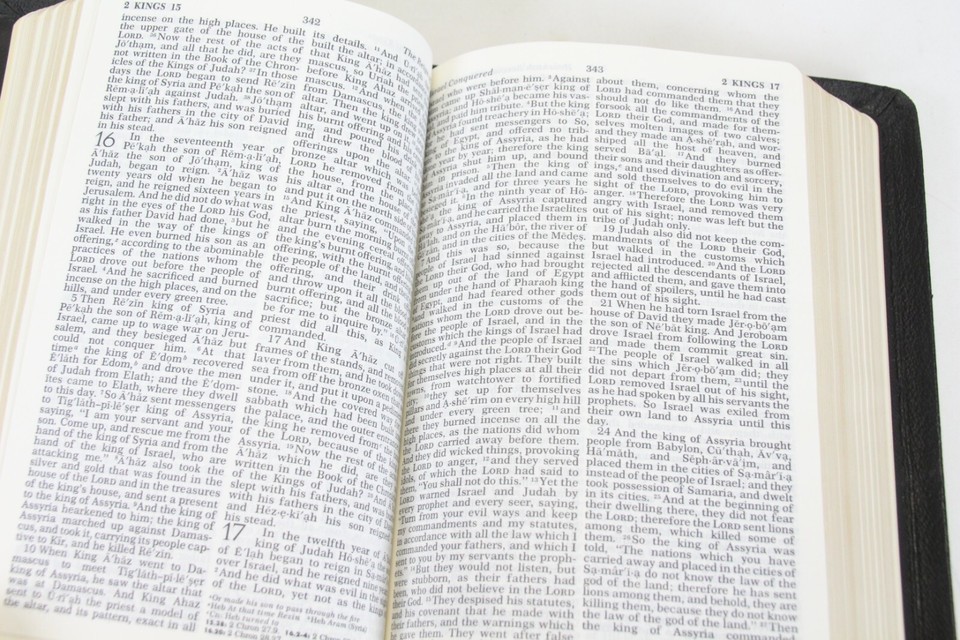 2 KINGS 15
342
incense on the high places. He built
the upper gate of the house of the
LORD. ³⁶Now the rest of the acts of
Jō´tham, and all that he did, are they
not written in the Book of the Chron-
icles of the Kings of Judah? ³⁷In those
days the LORD began to send Rē´zin
the king of Syria and Pē´kah the son of
Rĕm-a-lī´ah against Judah. ³⁸Jō´tham
slept with his fathers, and was buried
with his fathers in the city of David
his father; and Ā´hăz his son reigned
in his stead.
16 In the seventeenth year of
Pē´kah the son of Rĕm-a-lī´ah,
Ā´hăz the son of Jō´tham, king of
Judah, began to reign. ²Ā´hăz was
twenty years old when he began to
reign, and he reigned sixteen years in
Jerusalem. And he did not do what was
right in the eyes of the LORD his God,
as his father David had done, ³but he
walked in the way of the kings of
Israel. He even burned his son as an
offering, according to the abominable
practices of the nations whom the
LORD drove out before the people of
Israel. ⁴And he sacrificed and burned
incense on the high places, and on the
hills, and under every green tree.
5 Then Rē´zin king of Syria and
Pē´kah the son of Rĕm-a-lī´ah, king of
Israel, came up to wage war on Jeru-
salem, and they besieged Ā´hăz but
could not conquer him. ⁶At that
time the king of Ē´dom recovered
Ē´lăth for Edom, and drove the men
of Judah from Elath; and the Ē´dom-
ites came to Elath, where they dwell
to this day. ⁷So Ā´hăz sent messengers
to Tĭg´lăth-pĭ-lē´ṣer king of Assyria,
saying, "I am your servant and your
son. Come up, and rescue me from the
hand of the king of Syria and from the
hand of the king of Israel, who are
attacking me." ⁸Ā´hăz also took the
silver and gold that was found in the
house of the LORD and in the treasures
of the king's house, and sent a present
to the king of Assyria. ⁹And the king of
Assyria hearkened to him; the king of
Assyria marched up against Damas-
cus, and took it, carrying its people cap-
tive to Kir, and he killed Rē´zin.
10 When King Ā´hăz went to Da-
mascus to meet Tĭg´lăth-pĭ-lē´ṣer
king of Assyria, he saw the altar that
was at Damascus. And King Ahaz
sent to Ū-rī´ah the priest a model of
the altar, and its pattern, exact in all
its details. ¹¹And
built the altar; in accord
that King Ā´hăz had
mascus, so Uriah the
before King Ahaz
from Damascus. ¹²And when
altar. Then the king
altar, and went up on
his burnt offering and
ing, and poured his
and threw the blood
offerings upon the altar.
bronze altar which
LORD he removed from
the house, from the place
his altar and the house
and put it on the north side
¹⁵And King Ā´hăz commanded
the priest, saying, "Upon
altar burn the morning
and the evening cereal
the king's burnt offering,
offering, with the burnt
the people of the land, and
offering, and their drink
and throw upon it all the
burnt offering, and all the
sacrifice; but the bronze
be for me to inquire by."
priest did all this, as King
commanded.
17 And King Ā´hăz cut
frames of the stands, and
laver from them, and he took
sea from off the bronze oxen
under it, and put it upon a
stone. ¹⁸And the covered way
sabbath which had been built
the palace, and the outer
the king he removed from
of the LORD, because of the
Assyria. ¹⁹Now the rest of
Ā´hăz which he did, are
written in the Book of the
of the Kings of Judah? ²⁰And
slept with his fathers, and was
with his fathers in the city of David
and Hĕz-e-kī´ah his son reigned
his stead.
17 In the twelfth year of
king of Judah Hō-shē´a
of Ē´lah began to reign in Sa-ma
over Israel, and he reigned nine years.
²And he did what was evil in the sight
of the LORD, yet not as the kings
Or made his son to pass through the fire
Heb At that time Rezin Heb Aram (Syria)
15.38: 2 Chron 27.9.
Conquered
343
2 KINGS 17
who were before him. ³Against
came up Shăl-man-ē´ṣer king of
and Hō-shē´a became his vas-
and paid him tribute. ⁴But the king
found treachery in Hō-shē´a;
had sent messengers to So,
of Egypt, and offered no trib-
king of Assyria, as he had
year by year; therefore the king
shut him up, and bound
prison. ⁵Then the king of
invaded all the land and came
Sa-mâr´ĭ-a, and for three years he
it. ⁶In the ninth year of Hō-
the king of Assyria captured
and he carried the Israelites
to Assyria, and placed them in
and on the Hā´bôr, the river of
and in the cities of the Mēdeṣ.
And this was so, because the
of Israel had sinned against
LORD their God, who had brought
up out of the land of Egypt
under the hand of Pharaoh king
Egypt, and had feared other gods
walked in the customs of the
nations whom the LORD drove out be-
the people of Israel, and in the
customs which the kings of Israel had
introduced. ⁹And the people of Israel
did secretly against the LORD their God
things that were not right. They built
for themselves high places at all their
towns, from watchtower to fortified
they set up for themselves
pillars and A-shē´rĭm on every high hill
and under every green tree; ¹¹and
there they burned incense on all the
high places, as the nations did whom
the LORD carried away before them.
And they did wicked things, provoking
the LORD to anger, ¹²and they served
idols, of which the LORD had said to
them, "You shall not do this." ¹³Yet the
LORD warned Israel and Judah by
every prophet and every seer, saying,
"Turn from your evil ways and keep
my commandments and my statutes,
in accordance with all the law which I
commanded your fathers, and which I
sent to you by my servants the proph-
ets." ¹⁴But they would not listen, but
were stubborn, as their fathers had
been, who did not believe in the LORD
their God. ¹⁵They despised his statutes,
and his covenant that he made with
their fathers, and the warnings which
he gave them. They went after false
about them, concerning whom the
LORD had commanded them that they
should not do like them. ¹⁶And they
forsook all the commandments of the
LORD their God, and made for them-
selves molten images of two calves;
and they made an A-shē´rah, and wor-
shiped all the host of heaven, and
served Bā´al. ¹⁷And they burned
their sons and their daughters as offer-
ings, and used divination and sorcery,
and sold themselves to do evil in the
sight of the LORD, provoking him to
anger. ¹⁸Therefore the LORD was very
angry with Israel, and removed them
out of his sight; none was left but the
tribe of Judah only.
19 Judah also did not keep the com-
mandments of the LORD their God,
but walked in the customs which
Israel had introduced. ²⁰And the LORD
rejected all the descendants of Israel,
and afflicted them, and gave them into
the hand of spoilers, until he had cast
them out of his sight.
21 When he had torn Israel from the
house of David they made Jĕr-o-bō´am
the son of Nē´băt king. And Jeroboam
drove Israel from following the LORD
and made them commit great sin.
²²The people of Israel walked in all
the sins which Jĕr-o-bō´am did; they
did not depart from them, ²³until the
LORD removed Israel out of his sight,
as he had spoken by all his servants the
prophets. So Israel was exiled from
their own land to Assyria until this
day.
24 And the king of Assyria brought
people from Babylon, Cū´thah, Ăv´va,
Hā´măth, and Sĕph-ăr-vā´ĭm, and
placed them in the cities of Sa-mâr´ĭ-a
instead of the people of Israel; and they
took possession of Samaria, and dwelt
in its cities. ²⁵And at the beginning of
their dwelling there, they did not fear
the LORD; therefore the LORD sent lions
among them, which killed some of
them. ²⁶So the king of Assyria was
told, "The nations which you have
carried away and placed in the cities of
Sa-mâr´ĭ-a do not know the law of the
god of the land; therefore he has sent
lions among them, and behold, they are
killing them, because they do not know
the law of the god of the land." ²⁷Then
the king of Assyria commanded